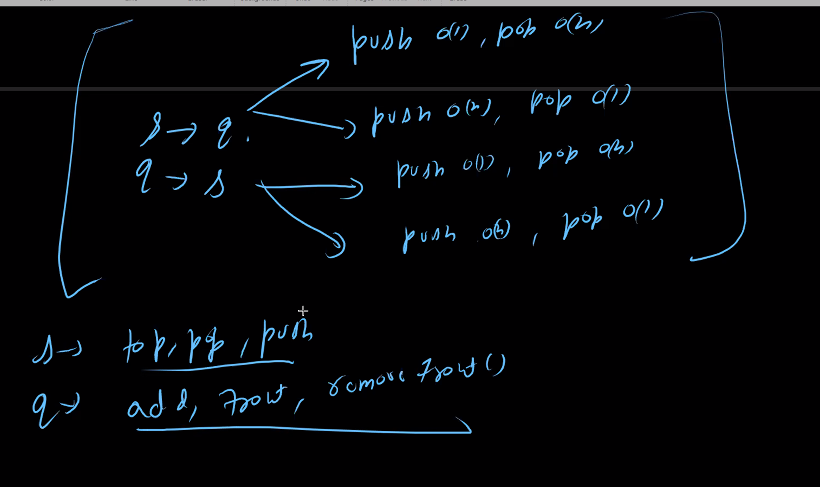 push O(1), pop O(n)
s → q.
push O(n), pop O(1)
q → s
push O(1), pop O(n)
push O(n), pop O(1)
s → top, pop, push
q → add, front, remove front()